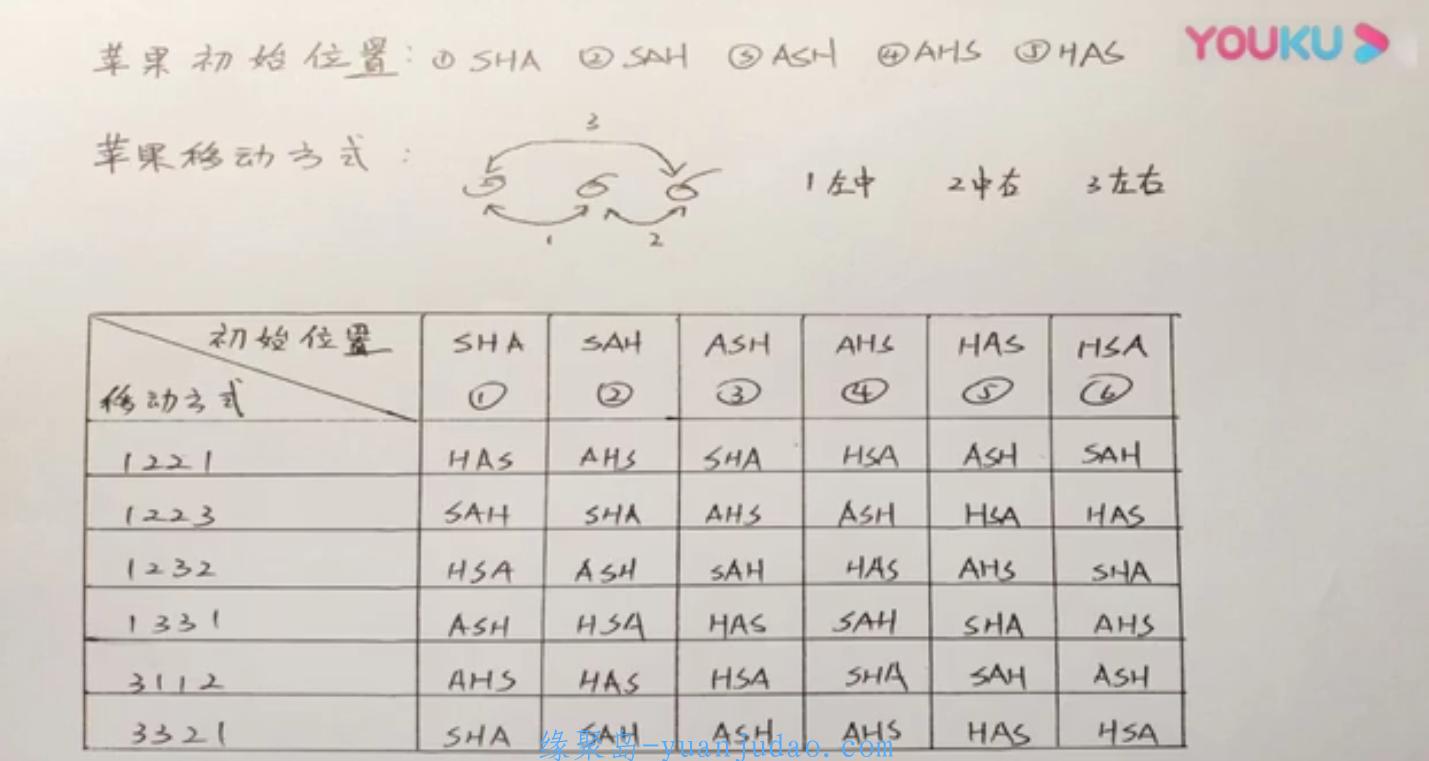 苹果初始位置：① SHA ② SAH ③ ASH ④ AHS ⑤ HAS
YOUKU
苹果移动方式：
3
1 左中 2 中右 3 左右
1 2
初始位置 SHA SAH ASH AHS HAS HSA
移动方式 ① ② ③ ④ ⑤ ⑥
1221 HAS AHS SHA HSA ASH SAH
1223 SAH SHA AHS ASH HSA HAS
1232 HSA ASH SAH HAS AHS SHA
1331 ASH HSA HAS SAH SHA AHS
3112 AHS HAS HSA SHA SAH ASH
3321 SHA SAH ASH AHS HAS HSA
缘聚岛-yuanjudao.com